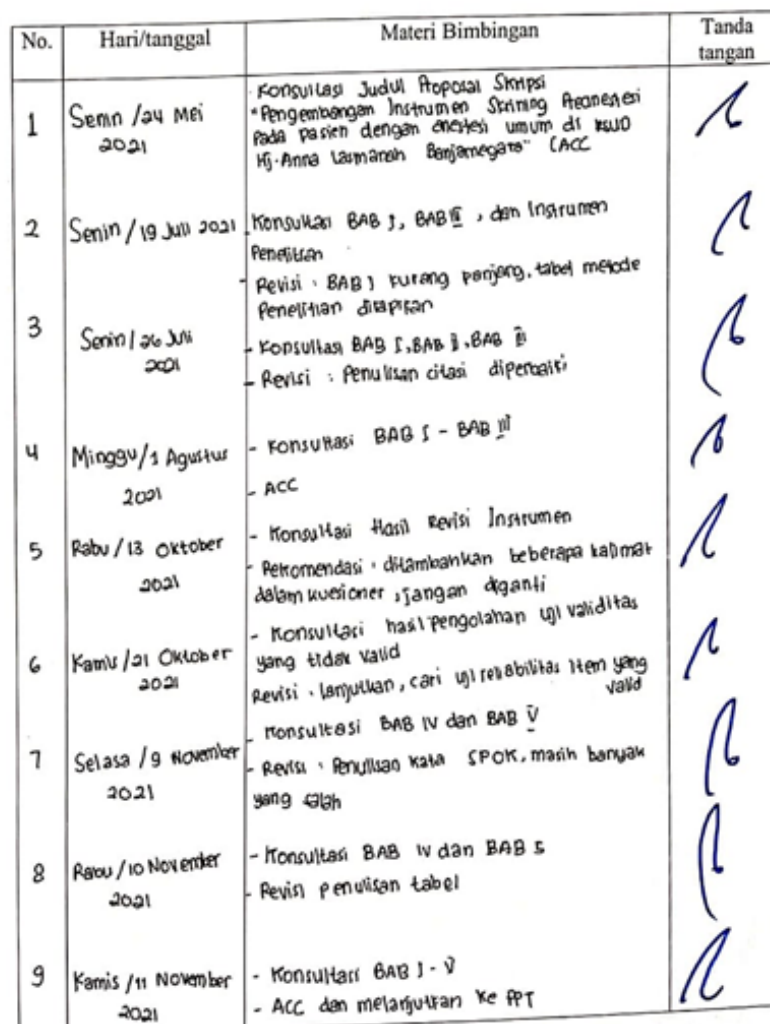 No. Hari/tanggal Materi Bimbingan Tanda tangan
1 Senin / 24 Mei 2021
- Konsultasi Judul Proposal Skripsi
"Pengembangan Instrumen Skrining Preanestesi
Pada pasien dengan anestesi umum di RSUD
Hj. Anna Lasmanah Banjarnegara" (ACC
2 Senin / 19 Juli 2021
- Konsultasi BAB I, BAB III, dan Instrumen
Penelitian
- Revisi : BAB I kurang panjang, tabel metode
Penelitian dirapikan
3 Senin / 26 Juli 2021
- Konsultasi BAB I, BAB II, BAB III
- Revisi : Penulisan citasi diperbaiki
4 Minggu / 1 Agustus 2021
- Konsultasi BAB I - BAB III
- ACC
5 Rabu / 13 Oktober 2021
- Konsultasi Hasil Revisi Instrumen
- Rekomendasi : ditambahkan beberapa kalimat
dalam kuesioner, jangan diganti
6 Kamis / 21 Oktober 2021
- Konsultasi hasil pengolahan uji validitas
yang tidak valid
Revisi : lanjutkan, cari uji reliabilitas item yang
valid
7 Selasa / 9 November 2021
- Konsultasi BAB IV dan BAB V
- Revisi : Penulisan kata SPOK, masih banyak
yang salah
8 Rabu / 10 November 2021
- Konsultasi BAB IV dan BAB 5
- Revisi penulisan tabel
9 Kamis / 11 November 2021
- Konsultasi BAB I - V
- ACC dan melanjutkan ke PPT